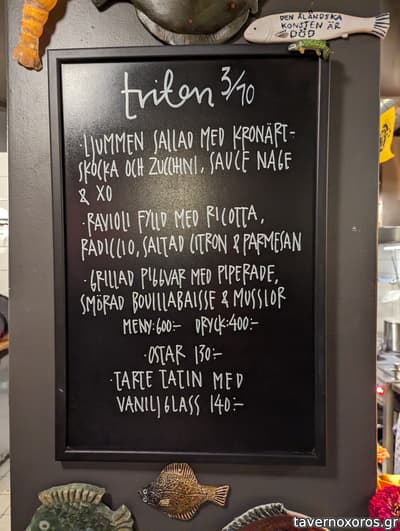 DEN ÅLÄNDSKA
KONSTEN ÄR
DÖD
trilen 3/10
·LJUMMEN SALLAD MED KRONÄRT-
SKOCKA OCH ZUCCHINI, SAUCE NAGE
& XO
·RAVIOLI FYLLD MED RICOTTA,
RADICCIO, SALTAD CITRON & PARMESAN
·GRILLAD PIGGVAR MED PIPERADE,
SMÖRAD BOUILLABAISSE & MUSSLOR
MENY:600:- DRYCK:400:-
·OSTAR 130:-
·TARTE TATIN MED
VANILJGLASS 140:-
tavernoxoros.gr